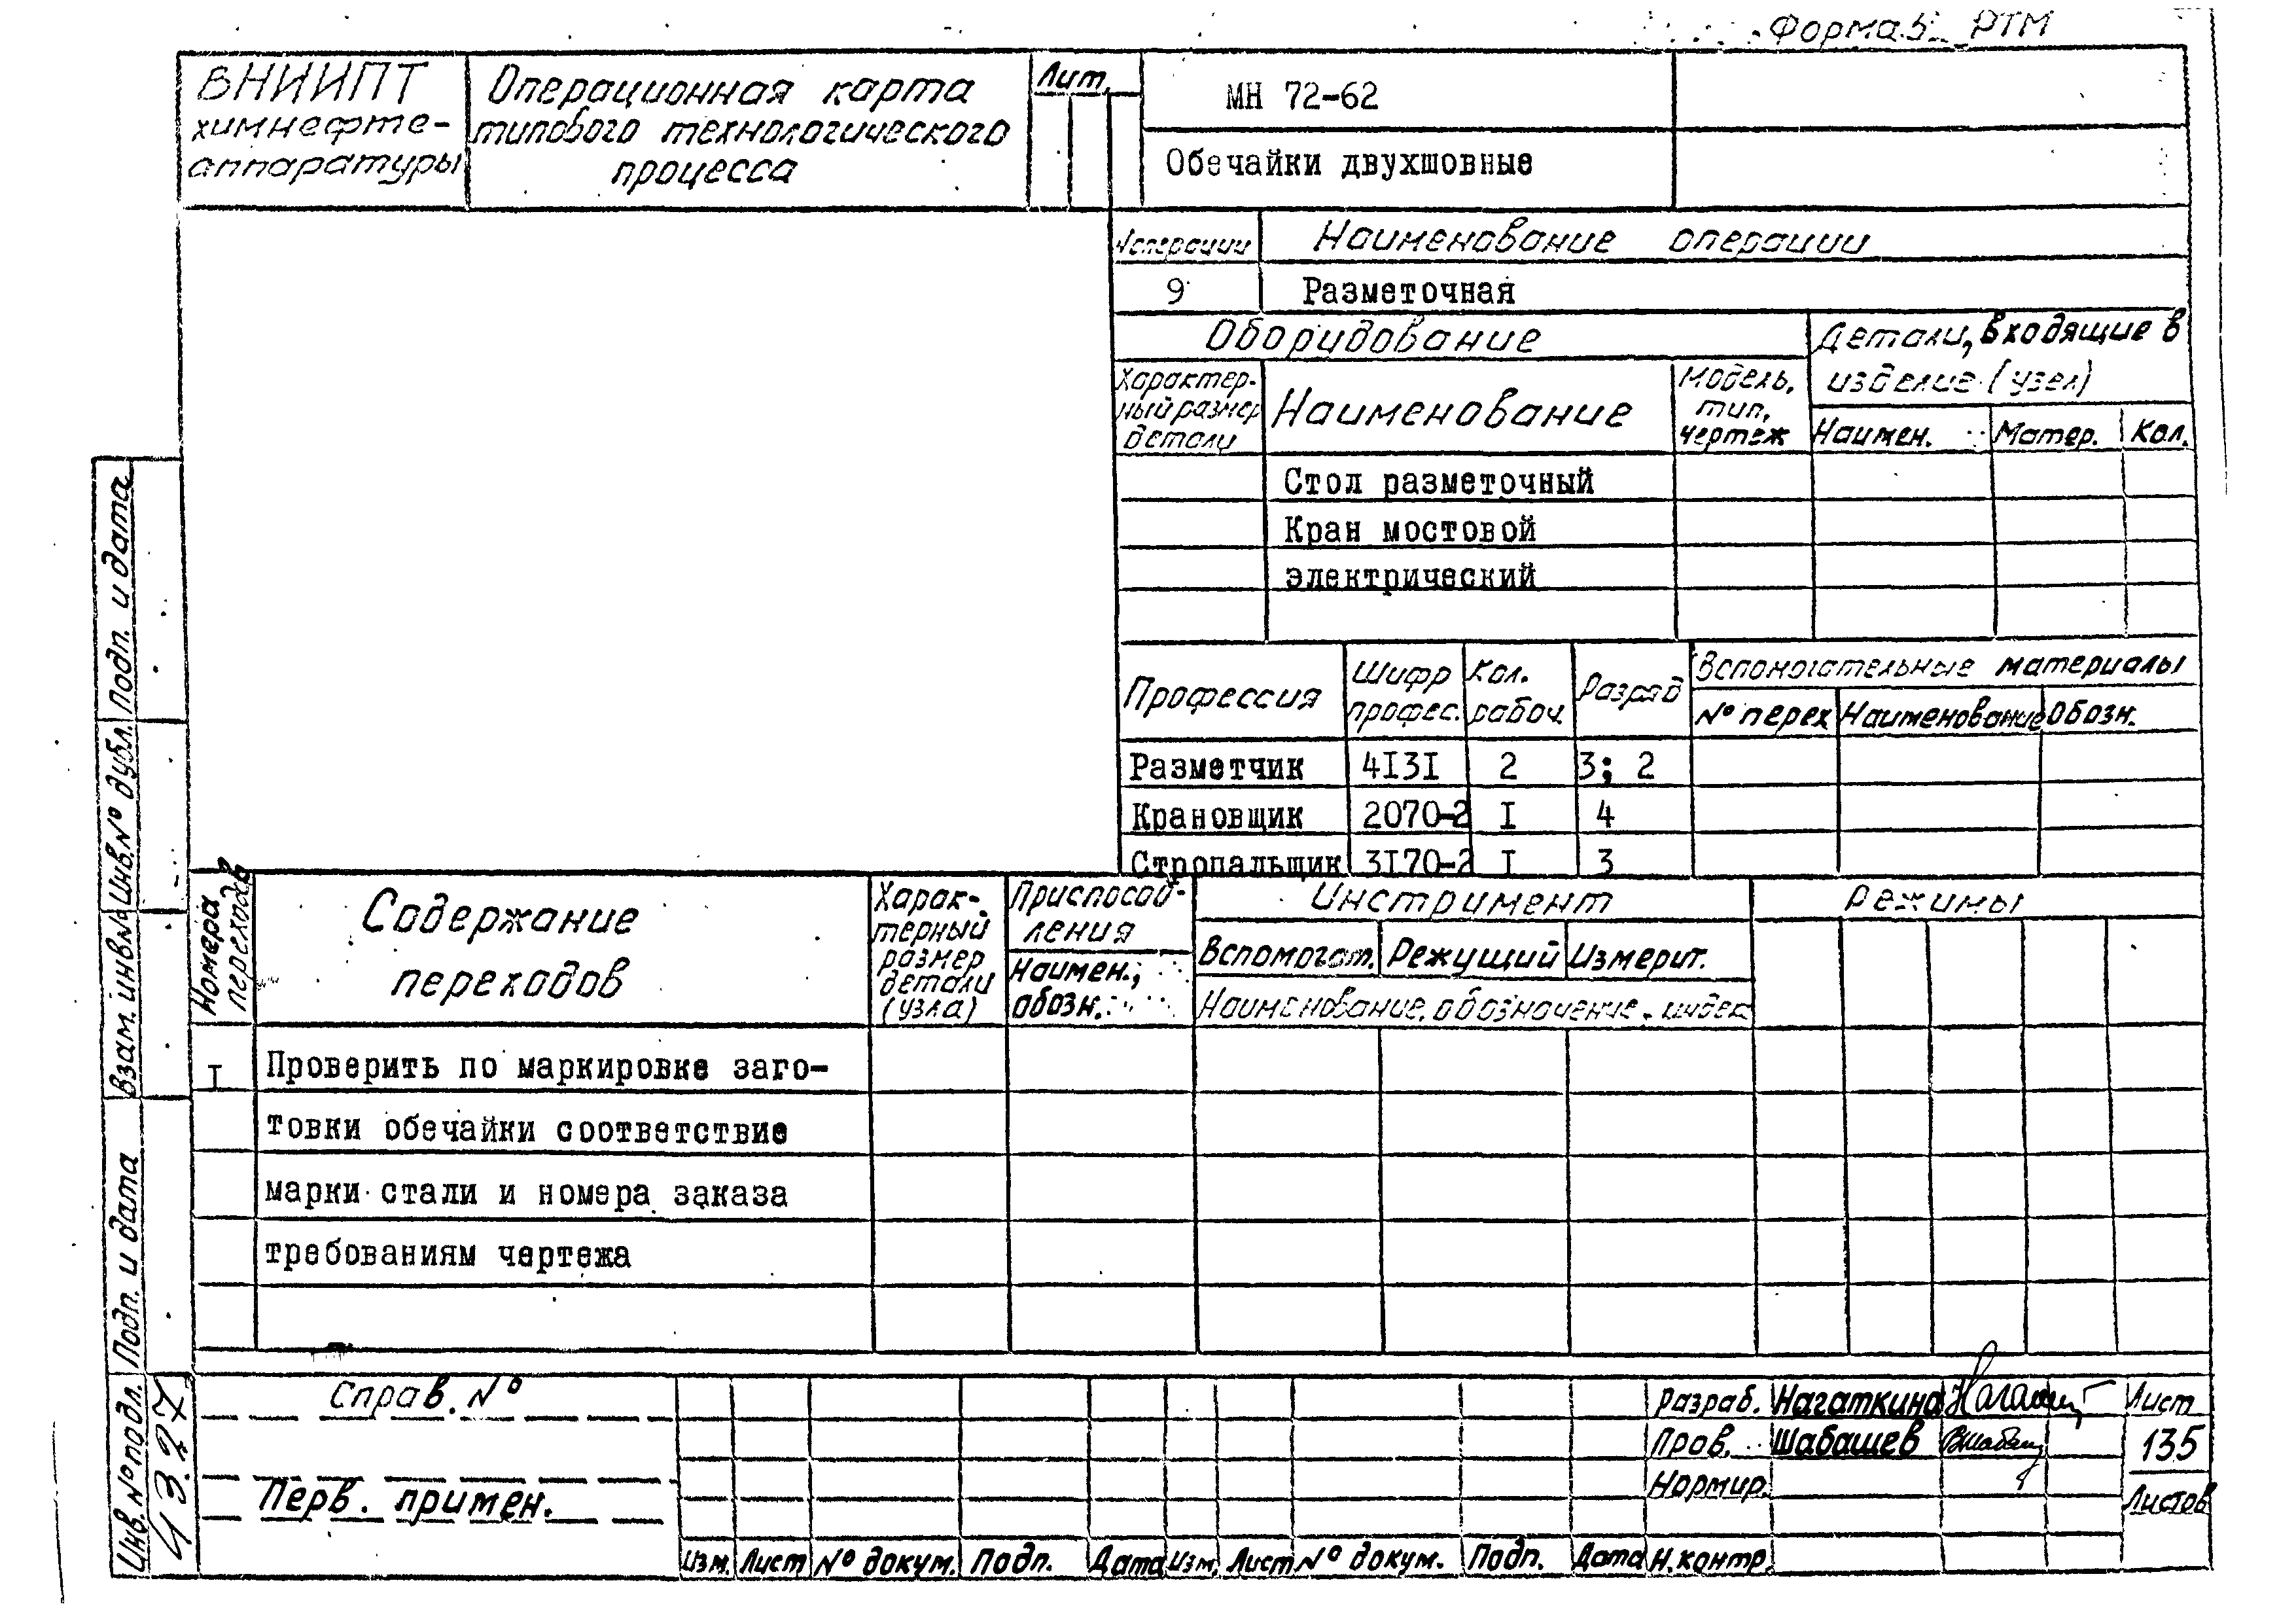 Форма 5 РТМ
ВНИИПТ
химнефте-
аппаратуры
Операционная карта
типового технологического
процесса
Лит.
МН 72-62
Обечайки двухшовные
№ операции
Наименование операции
9
Разметочная
Оборудование
Детали, входящие в
изделие (узел)
Характер-
ный размер
детали
Наименование
Модель,
тип,
чертеж
Наимен.
Матер.
Кол.
Стол разметочный
Кран мостовой
электрический
Профессия
Шифр
профес.
Кол.
рабоч.
Разряд
Вспомогательные материалы
№ перех
Наименование
Обозн.
Разметчик 4I3I 2 3; 2
Крановщик 2070-2 I 4
Стропальщик 3I70-2 I 3
Номера
переходов
Содержание
переходов
Харак-
терный
размер
детали
(узла)
Приспособ-
ления
Наимен.,
обозн.
Инструмент
Вспомогат.
Режущий
Измерит.
Наименование, обозначение, индекс
Режимы
I Проверить по маркировке заго-
товки обечайки соответствие
марки стали и номера заказа
требованиям чертежа
Подп. и дата
Инв.№ дубл.
Взам. инв№
Подп. и дата
Инв.№ подл.
Справ. №
Перв. примен.
Изм. Лист № докум. Подп. Дата Изм. Лист № докум. Подп. Дата Н.контр.
Разраб. Нагаткина
Пров. Шабашев
Нормир.
Лист
135
Листов